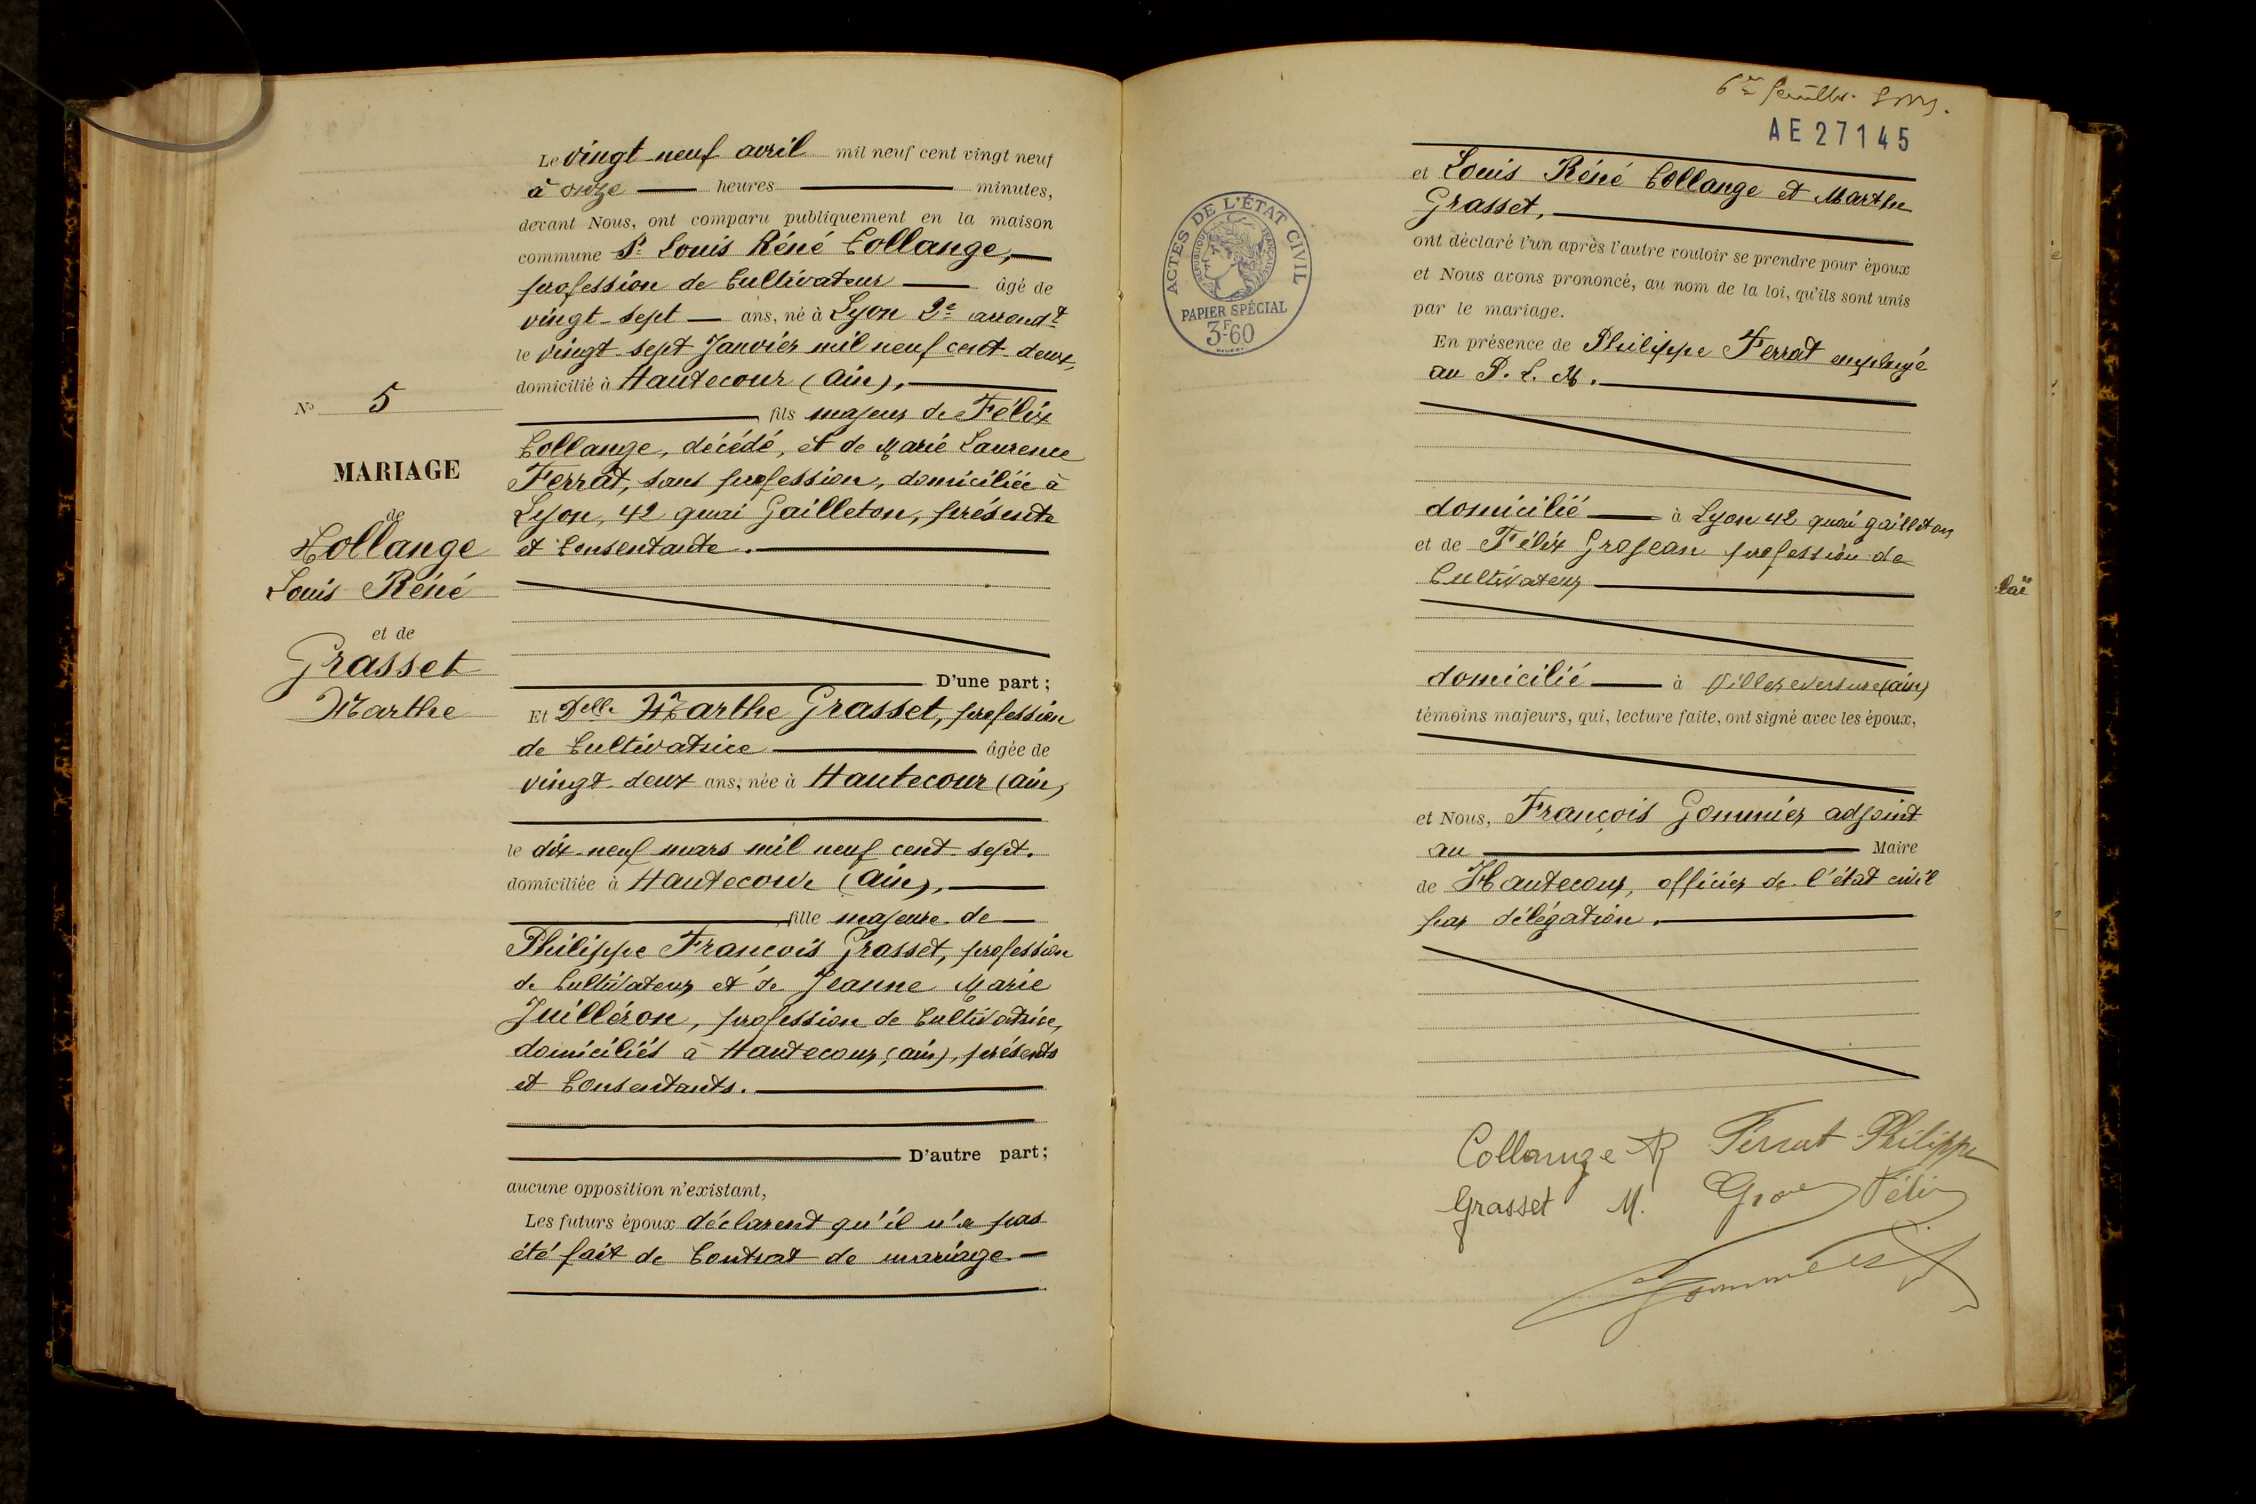 Le vingt-neuf avril mil neuf cent vingt neuf
à onze heures minutes,
devant Nous, ont comparu publiquement en la maison
commune Sr Louis Réné Collange,
profession de Cultivateur âgé de
vingt-sept ans, né à Lyon 2e arrondt
le vingt-sept Janvier mil neuf cent-deux,
domicilié à Hautecour (Ain),
fils majeur de Félix
Collange, décédé, et de Marie Laurence
Ferrat, sans profession, domiciliée à
Lyon, 42 quai Gailleton, présente
et Consentante.
D'une part;
Et Delle Marthe Grasset, profession
de Cultivatrice âgée de
vingt-deux ans, née à Hautecour (Ain)
le dix-neuf mars mil neuf cent-sept.
domiciliée à Hautecour (Ain),
fille majeure de
Philippe François Grasset, profession
de Cultivateur et de Jeanne Marie
Juilléron, profession de Cultivatrice,
domiciliés à Hautecour, (Ain), présents
et Consentants.
D'autre part;
aucune opposition n'existant,
Les futurs époux déclarent qu'il n'a pas
été fait de Contrat de mariage
No 5
MARIAGE
de
Collange
Louis Réné
et de
Grasset
Marthe
6me feuillet
AE27145
ACTES DE L'ÉTAT CIVIL
RÉPUBLIQUE FRANÇAISE
PAPIER SPÉCIAL
3F60
et Louis Réné Collange et Marthe
Grasset,
ont déclaré l'un après l'autre vouloir se prendre pour époux
et Nous avons prononcé, au nom de la loi, qu'ils sont unis
par le mariage.
En présence de Philippe Ferrat employé
au P. L. M.
domicilié à Lyon 42 quai gailleton
et de Félix Grosjean profession de
Cultivateur
domicilié à Villereversure (ain)
témoins majeurs, qui, lecture faite, ont signé avec les époux,
et Nous, François Gommier adjoint
au Maire
de Hautecour, officier de l'état civil
par délégation.
Collange R Ferrat Philippe
Grasset M. Félix
Gommier F